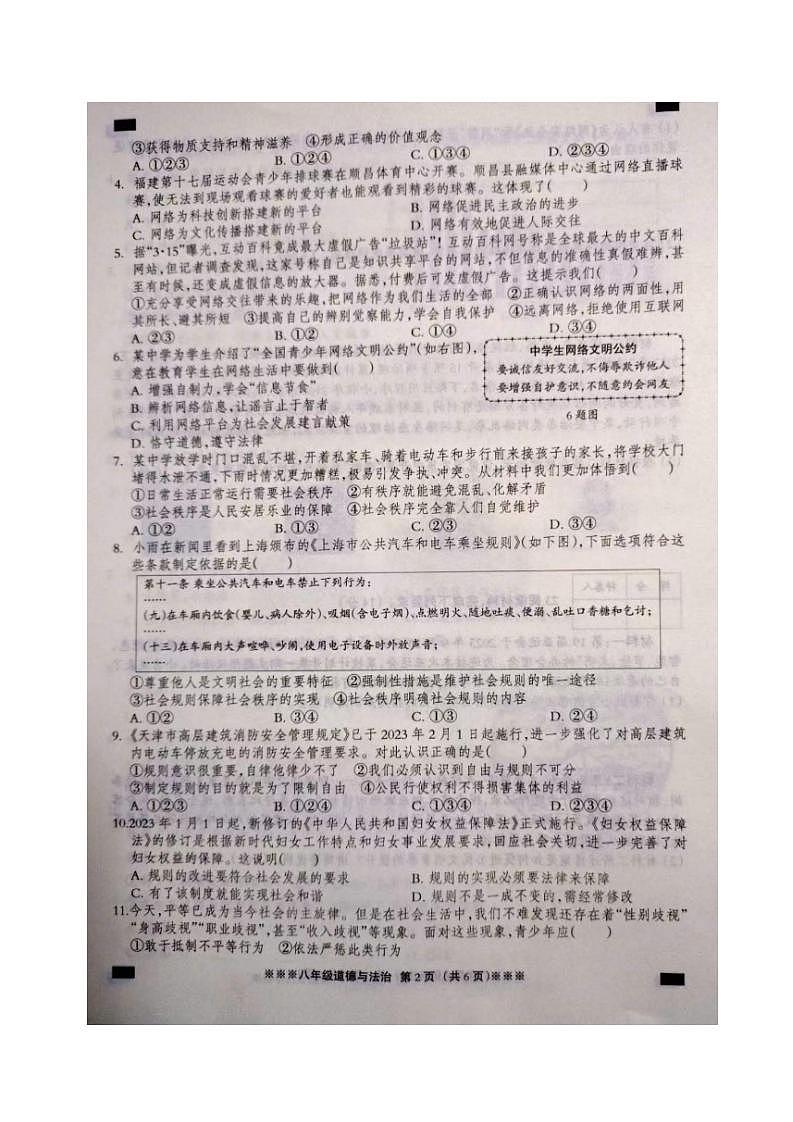 ③获得物质支持和精神滋养　④形成正确的价值观念
A. ①②③　B. ①②④　C. ①③④　D. ②③④
4. 福建第十七届运动会青少年排球赛在顺昌体育中心开赛。顺昌县融媒体中心通过网络直播球
赛,使无法到现场观看球赛的爱好者也能观看到精彩的球赛。这体现了(　　)
A. 网络为科技创新搭建新的平台　B. 网络促进民主政治的进步
C. 网络为文化传播搭建新平台　D. 网络有效地促进人际交往
5. 据“3·15”曝光,互动百科竟成最大虚假广告“垃圾站”！互动百科网号称是全球最大的中文百科
网站,但记者调查发现,这家号称自己是知识共享平台的网站,不但信息的准确性真假难辨,甚
至有时候,还变成虚假信息的放大器。据悉,付费后可发虚假广告。这提示我们(　　)
①充分享受网络交往带来的乐趣,把网络作为我们生活的全部　②正确认识网络的两面性,用
其所长、避其所短　③提高自己的辨别觉察能力,学会自我保护　④远离网络,拒绝使用互联网
A. ②③　B. ①②　C. ①④　D. ③④
6. 某中学为学生介绍了“全国青少年网络文明公约”(如右图),
意在教育学生在网络生活中要做到(　　)
A. 增强自制力,学会“信息节食”
B. 辨析网络信息,让谣言止于智者
C. 利用网络平台为社会发展建言献策
D. 恪守道德,遵守法律
中学生网络文明公约
要诚信友好交流,不侮辱欺诈他人
要增强自护意识,不随意约会网友
6 题图
7. 某中学放学时门口混乱不堪,开着私家车、骑着电动车和步行前来接孩子的家长,将学校大门
堵得水泄不通,下雨时情况更加糟糕,极易引发争执、冲突。从材料中我们更加体悟到(　　)
①日常生活正常运行需要社会秩序　②有秩序就能避免混乱、化解矛盾
③社会秩序是人民安居乐业的保障　④社会秩序完全靠人们自觉维护
A. ①②　B. ①③　C. ②③　D. ③④
8. 小雨在新闻里看到上海颁布的《上海市公共汽车和电车乘坐规则》(如下图),下面选项符合这
些条款制定依据的是(　　)
第十一条 乘坐公共汽车和电车禁止下列行为:
……
(九)在车厢内饮食(婴儿、病人除外)、吸烟(含电子烟)、点燃明火、随地吐痰、便溺、乱吐口香糖和乞讨;
……
(十三)在车厢内大声喧哗、吵闹,使用电子设备时外放声音;
……
①尊重他人是文明社会的重要特征　②强制性措施是维护社会规则的唯一途径
③社会规则保障社会秩序的实现　④社会秩序明确社会规则的内容
A. ①②　B. ③④　C. ①③　D. ②④
9. 《天津市高层建筑消防安全管理规定》已于 2023 年 2 月 1 日起施行,进一步强化了对高层建筑
内电动车停放充电的消防安全管理要求。对此认识正确的是(　　)
①规则意识很重要,自律他律少不了　②我们必须认识到自由与规则不可分
③制定规则的目的就是为了限制自由　④公民行使权利不得损害集体的利益
A. ①②③　B. ①②④　C. ①③④　D. ②③④
10. 2023 年 1 月 1 日起,新修订的《中华人民共和国妇女权益保障法》正式施行。《妇女权益保障
法》的修订是根据新时代妇女工作特点和妇女事业发展要求,回应社会关切,进一步完善了对
妇女权益的保障。这说明(　　)
A. 规则的改进要符合社会发展的要求　B. 规则的实现必须要法律来保障
C. 有了该制度就能实现社会和谐　D. 规则不是一成不变的,需经常修改
11. 今天,平等已成为当今社会的主旋律。但是在社会生活中,我们不难发现还存在着“性别歧视”
“身高歧视”“职业歧视”,甚至“收入歧视”等现象。面对这些现象,青少年应(　　)
①敢于抵制不平等行为　②依法严惩此类行为
※※※八年级道德与法治　第 2 页（共 6 页）※※※